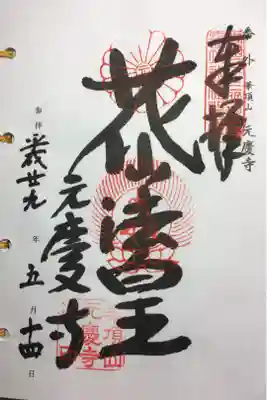 番外 華頂山 元慶寺
奉拝
花山法皇
元慶寺
参拝 平成廿九年五月十四日
華頂山元慶寺印